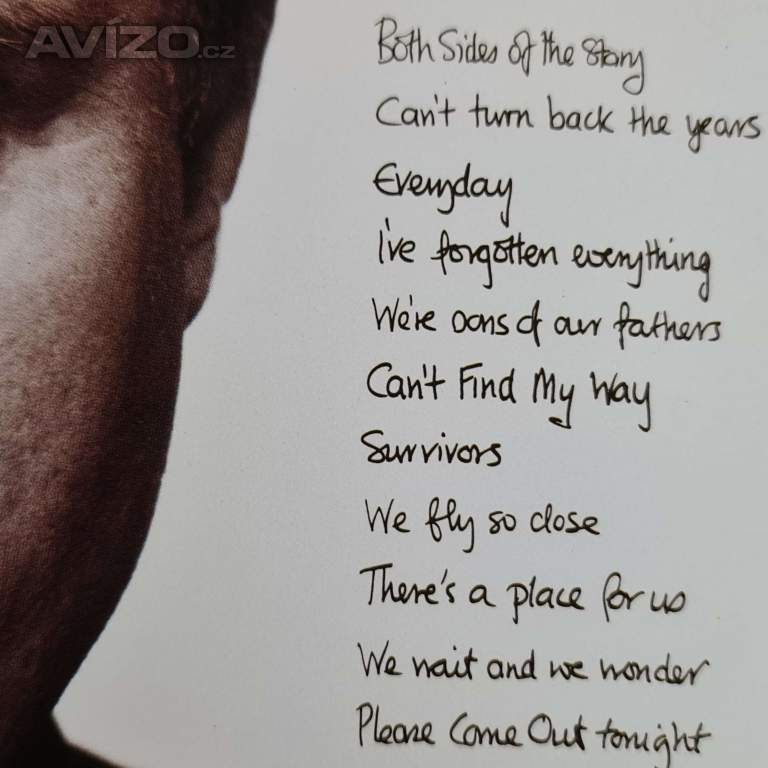 AVÍZO.cz
Both Sides of the Story
Can't turn back the years
Everyday
I've forgotten everything
We're sons of our fathers
Can't Find My Way
Survivors
We fly so close
There's a place for us
We wait and we wonder
Please Come Out tonight